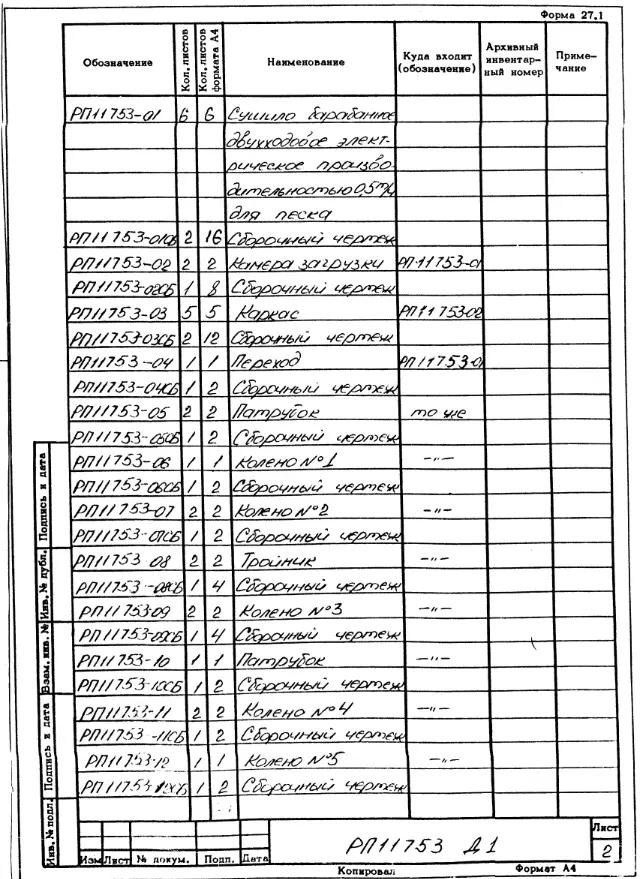 Форма 27.1
Обозначение Кол. листов Кол. листов формата А4 Наименование Куда входит (обозначение) Архивный инвентарный номер Примечание
РП11753-01 6 6 Сушило барабанное
двухходовое элект-
рическое произво-
дительностью 0,5 т/ч
для песка
РП11753-01СБ 2 16 Сборочный чертеж
РП11753-02 2 2 Камера загрузки РП11753-01
РП11753-02СБ 1 8 Сборочный чертеж
РП11753-03 5 5 Каркас РП11753-02
РП11753-03СБ 2 12 Сборочный чертеж
РП11753-04 1 1 Переход РП11753-01
РП11753-04СБ 1 2 Сборочный чертеж
РП11753-05 2 2 Патрубок то же
РП11753-05СБ 1 2 Сборочный чертеж
РП11753-06 1 1 Колено №1 -"-
РП11753-06СБ 1 2 Сборочный чертеж
РП11753-07 2 2 Колено №2 -"-
РП11753-07СБ 1 2 Сборочный чертеж
РП11753 08 2 2 Тройник -"-
РП11753-08СБ 1 4 Сборочный чертеж
РП11753-09 2 2 Колено №3 -"-
РП11753-09СБ 1 4 Сборочный чертеж
РП11753-10 1 1 Патрубок -"-
РП11753-10СБ 1 2 Сборочный чертеж
РП11753-11 2 2 Колено №4 -"-
РП11753-11СБ 1 2 Сборочный чертеж
РП11753-12 1 1 Колено №5 -"-
РП11753-12СБ 1 2 Сборочный чертеж
Подпись и дата
Инв. № дубл.
Взам. инв. №
Подпись и дата
Инв. № подл.
Изм Лист № докум. Подп. Дата
РП11753 Д1
Лист
2
Копировал Формат А4